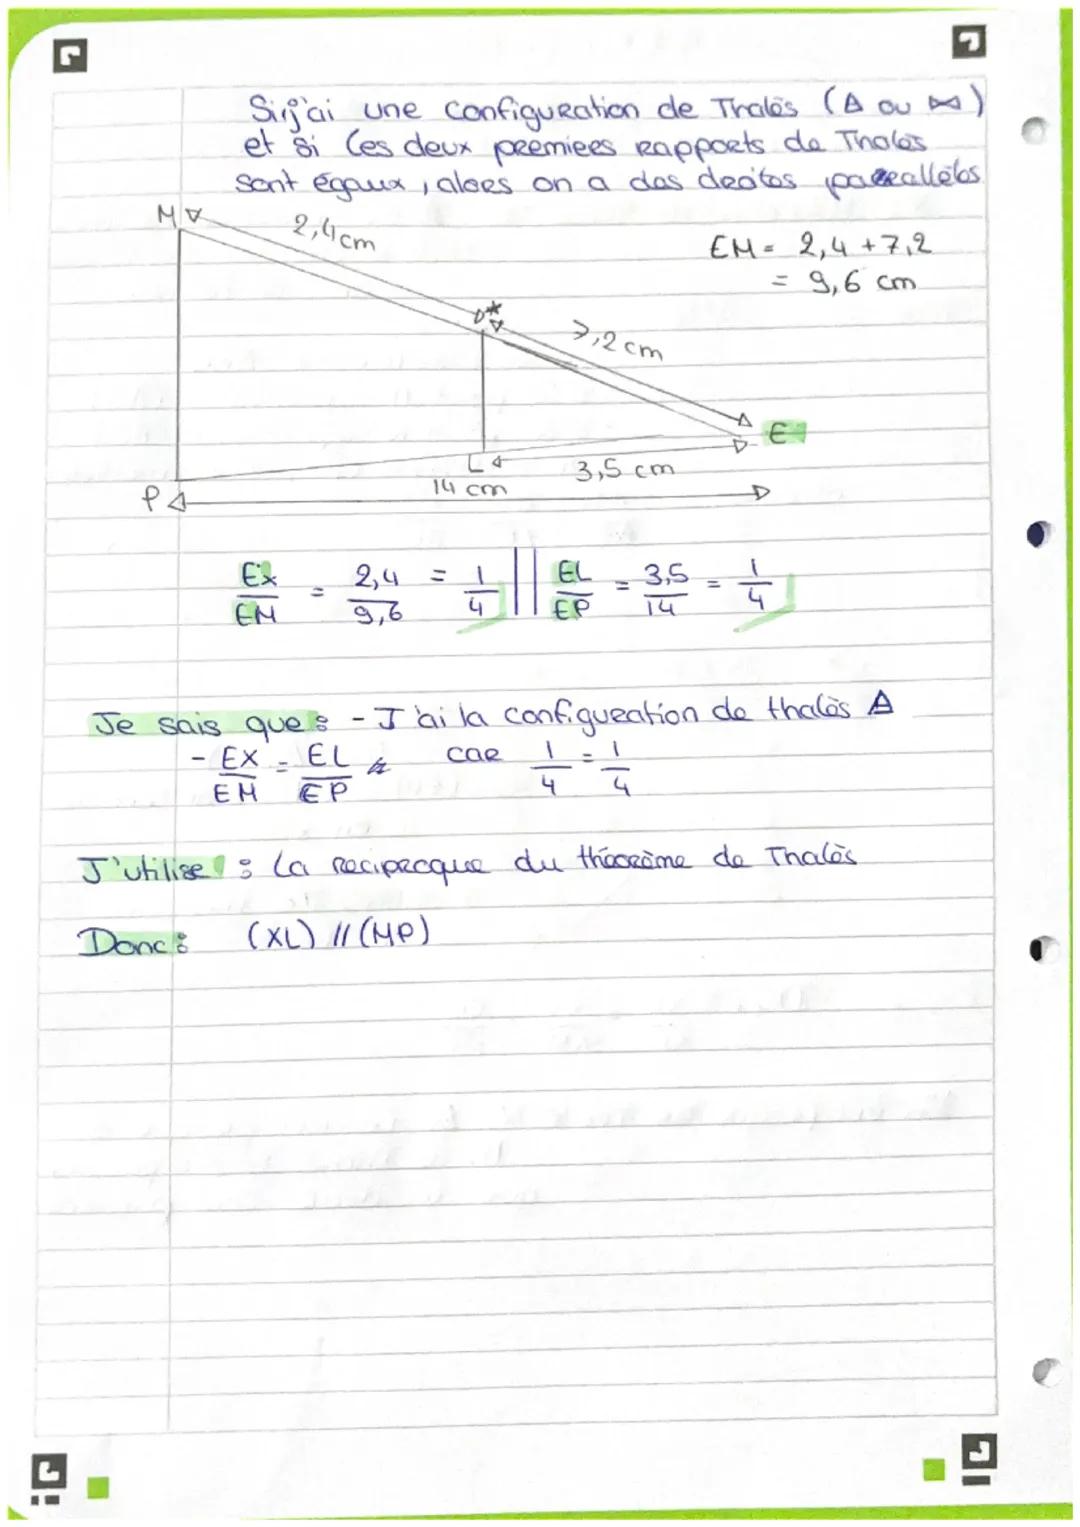 Si j'ai une configuration de Thalès (△ ou ⋈)
et si les deux premiers rapports de Thalès
sont égaux, alors on a des droites parallèles
M
2,4 cm
EM = 2,4 + 7,2
= 9,6 cm
7,2 cm
E
L
3,5 cm
14 cm
P
EX/EM = 2,4/9,6 = 1/4 || EL/EP = 3,5/14 = 1/4
Je sais que : - J'ai la configuration de thalès △
- EX/EM = EL/EP car 1/4 = 1/4
J'utilise : la réciproque du théorème de Thalès
Donc : (XL) // (MP)